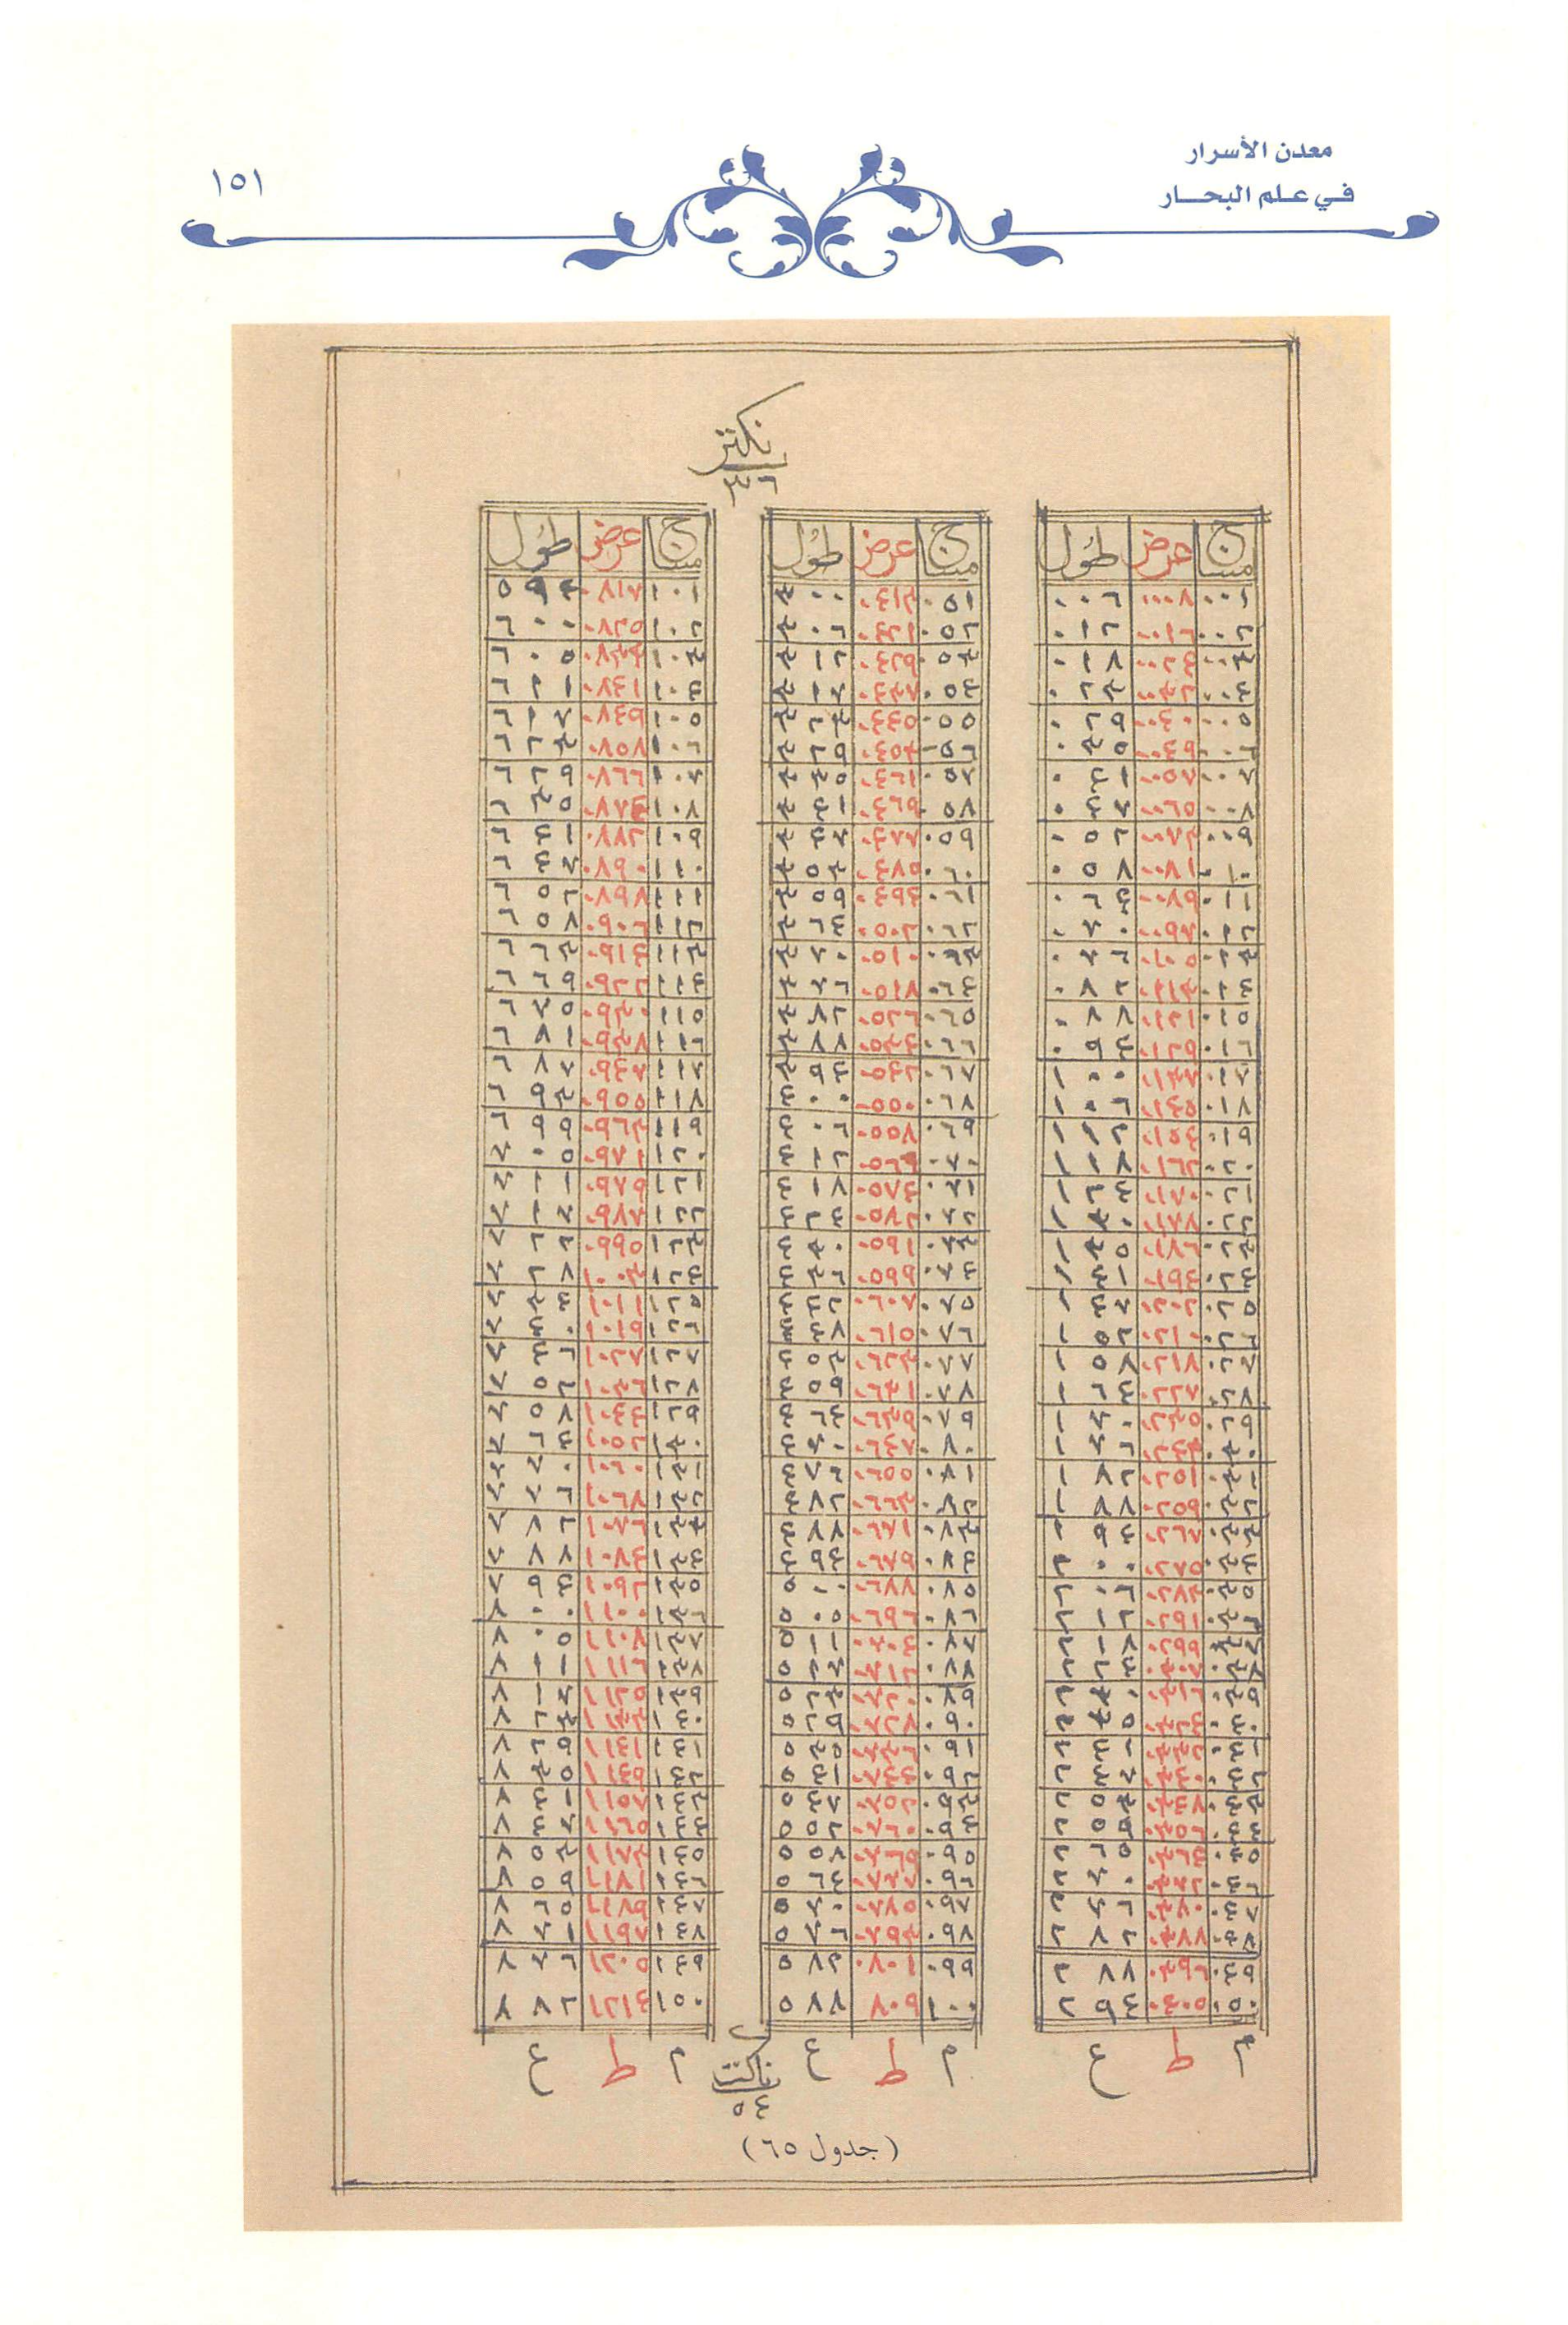 معدن الأسرار
في علم البحار
١٥١
نكتر
٣٦
مساج عرض طول
٠٠١ ٠٠٠٨ ٠٠٦
٠٠٢ ٠٠١٦ ٠١٢
٠٠٣ ٠٠٢٤ ٠١٨
٠٠٤ ٠٠٣٢ ٠٢٣
٠٠٥ ٠٠٤٠ ٠٢٩
٠٠٦ ٠٠٤٩ ٠٣٥
٠٠٧ ٠٠٥٧ ٠٤١
٠٠٨ ٠٠٦٥ ٠٤٧
٠٠٩ ٠٠٧٣ ٠٥٢
٠١٠ ٠٠٨١ ٠٥٨
٠١١ ٠٠٨٩ ٠٦٤
٠١٢ ٠٠٩٧ ٠٧٠
٠١٣ ٠١٠٥ ٠٧٦
٠١٤ ٠١١٣ ٠٨٢
٠١٥ ٠١٢١ ٠٨٨
٠١٦ ٠١٢٩ ٠٩٤
٠١٧ ٠١٣٧ ١٠٠
٠١٨ ٠١٤٥ ١٠٦
٠١٩ ٠١٥٤ ١١٢
٠٢٠ ٠١٦٢ ١١٨
٠٢١ ٠١٧٠ ١٢٤
٠٢٢ ٠١٧٨ ١٣٠
٠٢٣ ٠١٨٦ ١٣٥
٠٢٤ ٠١٩٤ ١٤١
٠٢٥ ٠٢٠٢ ١٤٧
٠٢٦ ٠٢١٠ ١٥٢
٠٢٧ ٠٢١٨ ١٥٨
٠٢٨ ٠٢٢٧ ١٦٤
٠٢٩ ٠٢٣٥ ١٧٠
٠٣٠ ٠٢٤٣ ١٧٦
٠٣١ ٠٢٥١ ١٨٢
٠٣٢ ٠٢٥٩ ١٨٨
٠٣٣ ٠٢٦٧ ١٩٤
٠٣٤ ٠٢٧٥ ٢٠٠
٠٣٥ ٠٢٨٣ ٢٠٦
٠٣٦ ٠٢٩١ ٢١٢
٠٣٧ ٠٢٩٩ ٢١٨
٠٣٨ ٠٣٠٧ ٢٢٤
٠٣٩ ٠٣١٦ ٢٣٠
٠٤٠ ٠٣٢٤ ٢٣٥
٠٤١ ٠٣٣٢ ٢٤١
٠٤٢ ٠٣٤٠ ٢٤٧
٠٤٣ ٠٣٤٧ ٢٥٣
٠٤٤ ٠٣٥٦ ٢٥٩
٠٤٥ ٠٣٦٤ ٢٦٥
٠٤٦ ٠٣٧٢ ٢٧٠
٠٤٧ ٠٣٨٠ ٢٧٦
٠٤٨ ٠٣٨٨ ٢٨٢
٠٤٩ ٠٣٩٦ ٢٨٨
٠٥٠ ٠٤٠٥ ٢٩٤
م ط ع
مساج عرض طول
٠٥١ ٠٤١٣ ٣٠٠
٠٥٢ ٠٤٢١ ٣٠٦
٠٥٣ ٠٤٢٩ ٣١٢
٠٥٤ ٠٤٣٧ ٣١٧
٠٥٥ ٠٤٤٥ ٣٢٣
٠٥٦ ٠٤٥٣ ٣٢٩
٠٥٧ ٠٤٦١ ٣٣٥
٠٥٨ ٠٤٦٩ ٣٤١
٠٥٩ ٠٤٧٧ ٣٤٧
٠٦٠ ٠٤٨٥ ٣٥٣
٠٦١ ٠٤٩٣ ٣٥٩
٠٦٢ ٠٥٠٢ ٣٦٤
٠٦٣ ٠٥١٠ ٣٧٠
٠٦٤ ٠٥١٨ ٣٧٦
٠٦٥ ٠٥٢٦ ٣٨٢
٠٦٦ ٠٥٣٤ ٣٨٨
٠٦٧ ٠٥٤٢ ٣٩٤
٠٦٨ ٠٥٥٠ ٤٠٠
٠٦٩ ٠٥٥٨ ٤٠٦
٠٧٠ ٠٥٦٦ ٤١٢
٠٧١ ٠٥٧٤ ٤١٨
٠٧٢ ٠٥٨٢ ٤٢٤
٠٧٣ ٠٥٩١ ٤٣٠
٠٧٤ ٠٥٩٩ ٤٣٦
٠٧٥ ٠٦٠٧ ٤٤٢
٠٧٦ ٠٦١٥ ٤٤٨
٠٧٧ ٠٦٢٣ ٤٥٣
٠٧٨ ٠٦٣١ ٤٥٩
٠٧٩ ٠٦٣٩ ٤٦٤
٠٨٠ ٠٦٤٧ ٤٧٠
٠٨١ ٠٦٥٥ ٤٧٦
٠٨٢ ٠٦٦٣ ٤٨٢
٠٨٣ ٠٦٧١ ٤٨٨
٠٨٤ ٠٦٧٩ ٤٩٤
٠٨٥ ٠٦٨٨ ٥٠٠
٠٨٦ ٠٦٩٦ ٥٠٥
٠٨٧ ٠٧٠٤ ٥١١
٠٨٨ ٠٧١٢ ٥١٧
٠٨٩ ٠٧٢٠ ٥٢٣
٠٩٠ ٠٧٢٨ ٥٢٩
٠٩١ ٠٧٣٦ ٥٣٥
٠٩٢ ٠٧٤٤ ٥٤١
٠٩٣ ٠٧٥٢ ٥٤٧
٠٩٤ ٠٧٦٠ ٥٥٢
٠٩٥ ٠٧٦٩ ٥٥٨
٠٩٦ ٠٧٧٧ ٥٦٤
٠٩٧ ٠٧٨٥ ٥٧٠
٠٩٨ ٠٧٩٣ ٥٧٦
٠٩٩ ٠٨٠١ ٥٨٢
١٠٠ ٨٠٩ ٥٨٨
م ط ع
مساج عرض طول
١٠١ ٠٨١٧ ٥٩٤
١٠٢ ٠٨٢٥ ٦٠٠
١٠٣ ٠٨٣٣ ٦٠٥
١٠٤ ٠٨٤١ ٦١١
١٠٥ ٠٨٤٩ ٦١٧
١٠٦ ٠٨٥٨ ٦٢٣
١٠٧ ٠٨٦٦ ٦٢٩
١٠٨ ٠٨٧٤ ٦٣٥
١٠٩ ٠٨٨٢ ٦٤١
١١٠ ٠٨٩٠ ٦٤٧
١١١ ٠٨٩٨ ٦٥٢
١١٢ ٠٩٠٦ ٦٥٨
١١٣ ٠٩١٤ ٦٦٣
١١٤ ٠٩٢٢ ٦٦٩
١١٥ ٠٩٣٠ ٦٧٥
١١٦ ٠٩٣٨ ٦٨١
١١٧ ٠٩٤٧ ٦٨٧
١١٨ ٠٩٥٥ ٦٩٣
١١٩ ٠٩٦٣ ٦٩٩
١٢٠ ٠٩٧١ ٧٠٥
١٢١ ٠٩٧٩ ٧١١
١٢٢ ٠٩٨٧ ٧١٧
١٢٣ ٠٩٩٥ ٧٢٢
١٢٤ ١٠٠٣ ٧٢٨
١٢٥ ١٠١١ ٧٣٤
١٢٦ ١٠١٩ ٧٤٠
١٢٧ ١٠٢٧ ٧٤٦
١٢٨ ١٠٣٦ ٧٥٢
١٢٩ ١٠٤٤ ٧٥٨
١٣٠ ١٠٥٢ ٧٦٤
١٣١ ١٠٦٠ ٧٧٠
١٣٢ ١٠٦٨ ٧٧٦
١٣٣ ١٠٧٦ ٧٨٢
١٣٤ ١٠٨٤ ٧٨٨
١٣٥ ١٠٩٢ ٧٩٤
١٣٦ ١١٠٠ ٨٠٠
١٣٧ ١١٠٨ ٨٠٥
١٣٨ ١١١٦ ٨١١
١٣٩ ١١٢٥ ٨١٧
١٤٠ ١١٣٣ ٨٢٣
١٤١ ١١٤١ ٨٢٩
١٤٢ ١١٤٩ ٨٣٥
١٤٣ ١١٥٧ ٨٤١
١٤٤ ١١٦٥ ٨٤٧
١٤٥ ١١٧٣ ٨٥٣
١٤٦ ١١٨١ ٨٥٩
١٤٧ ١١٨٩ ٨٦٥
١٤٨ ١١٩٧ ٨٧١
١٤٩ ١٢٠٥ ٨٧٦
١٥٠ ١٢١٤ ٨٨٢
م ط ع
ناكنت
٥٤
(جدول ٦٥)